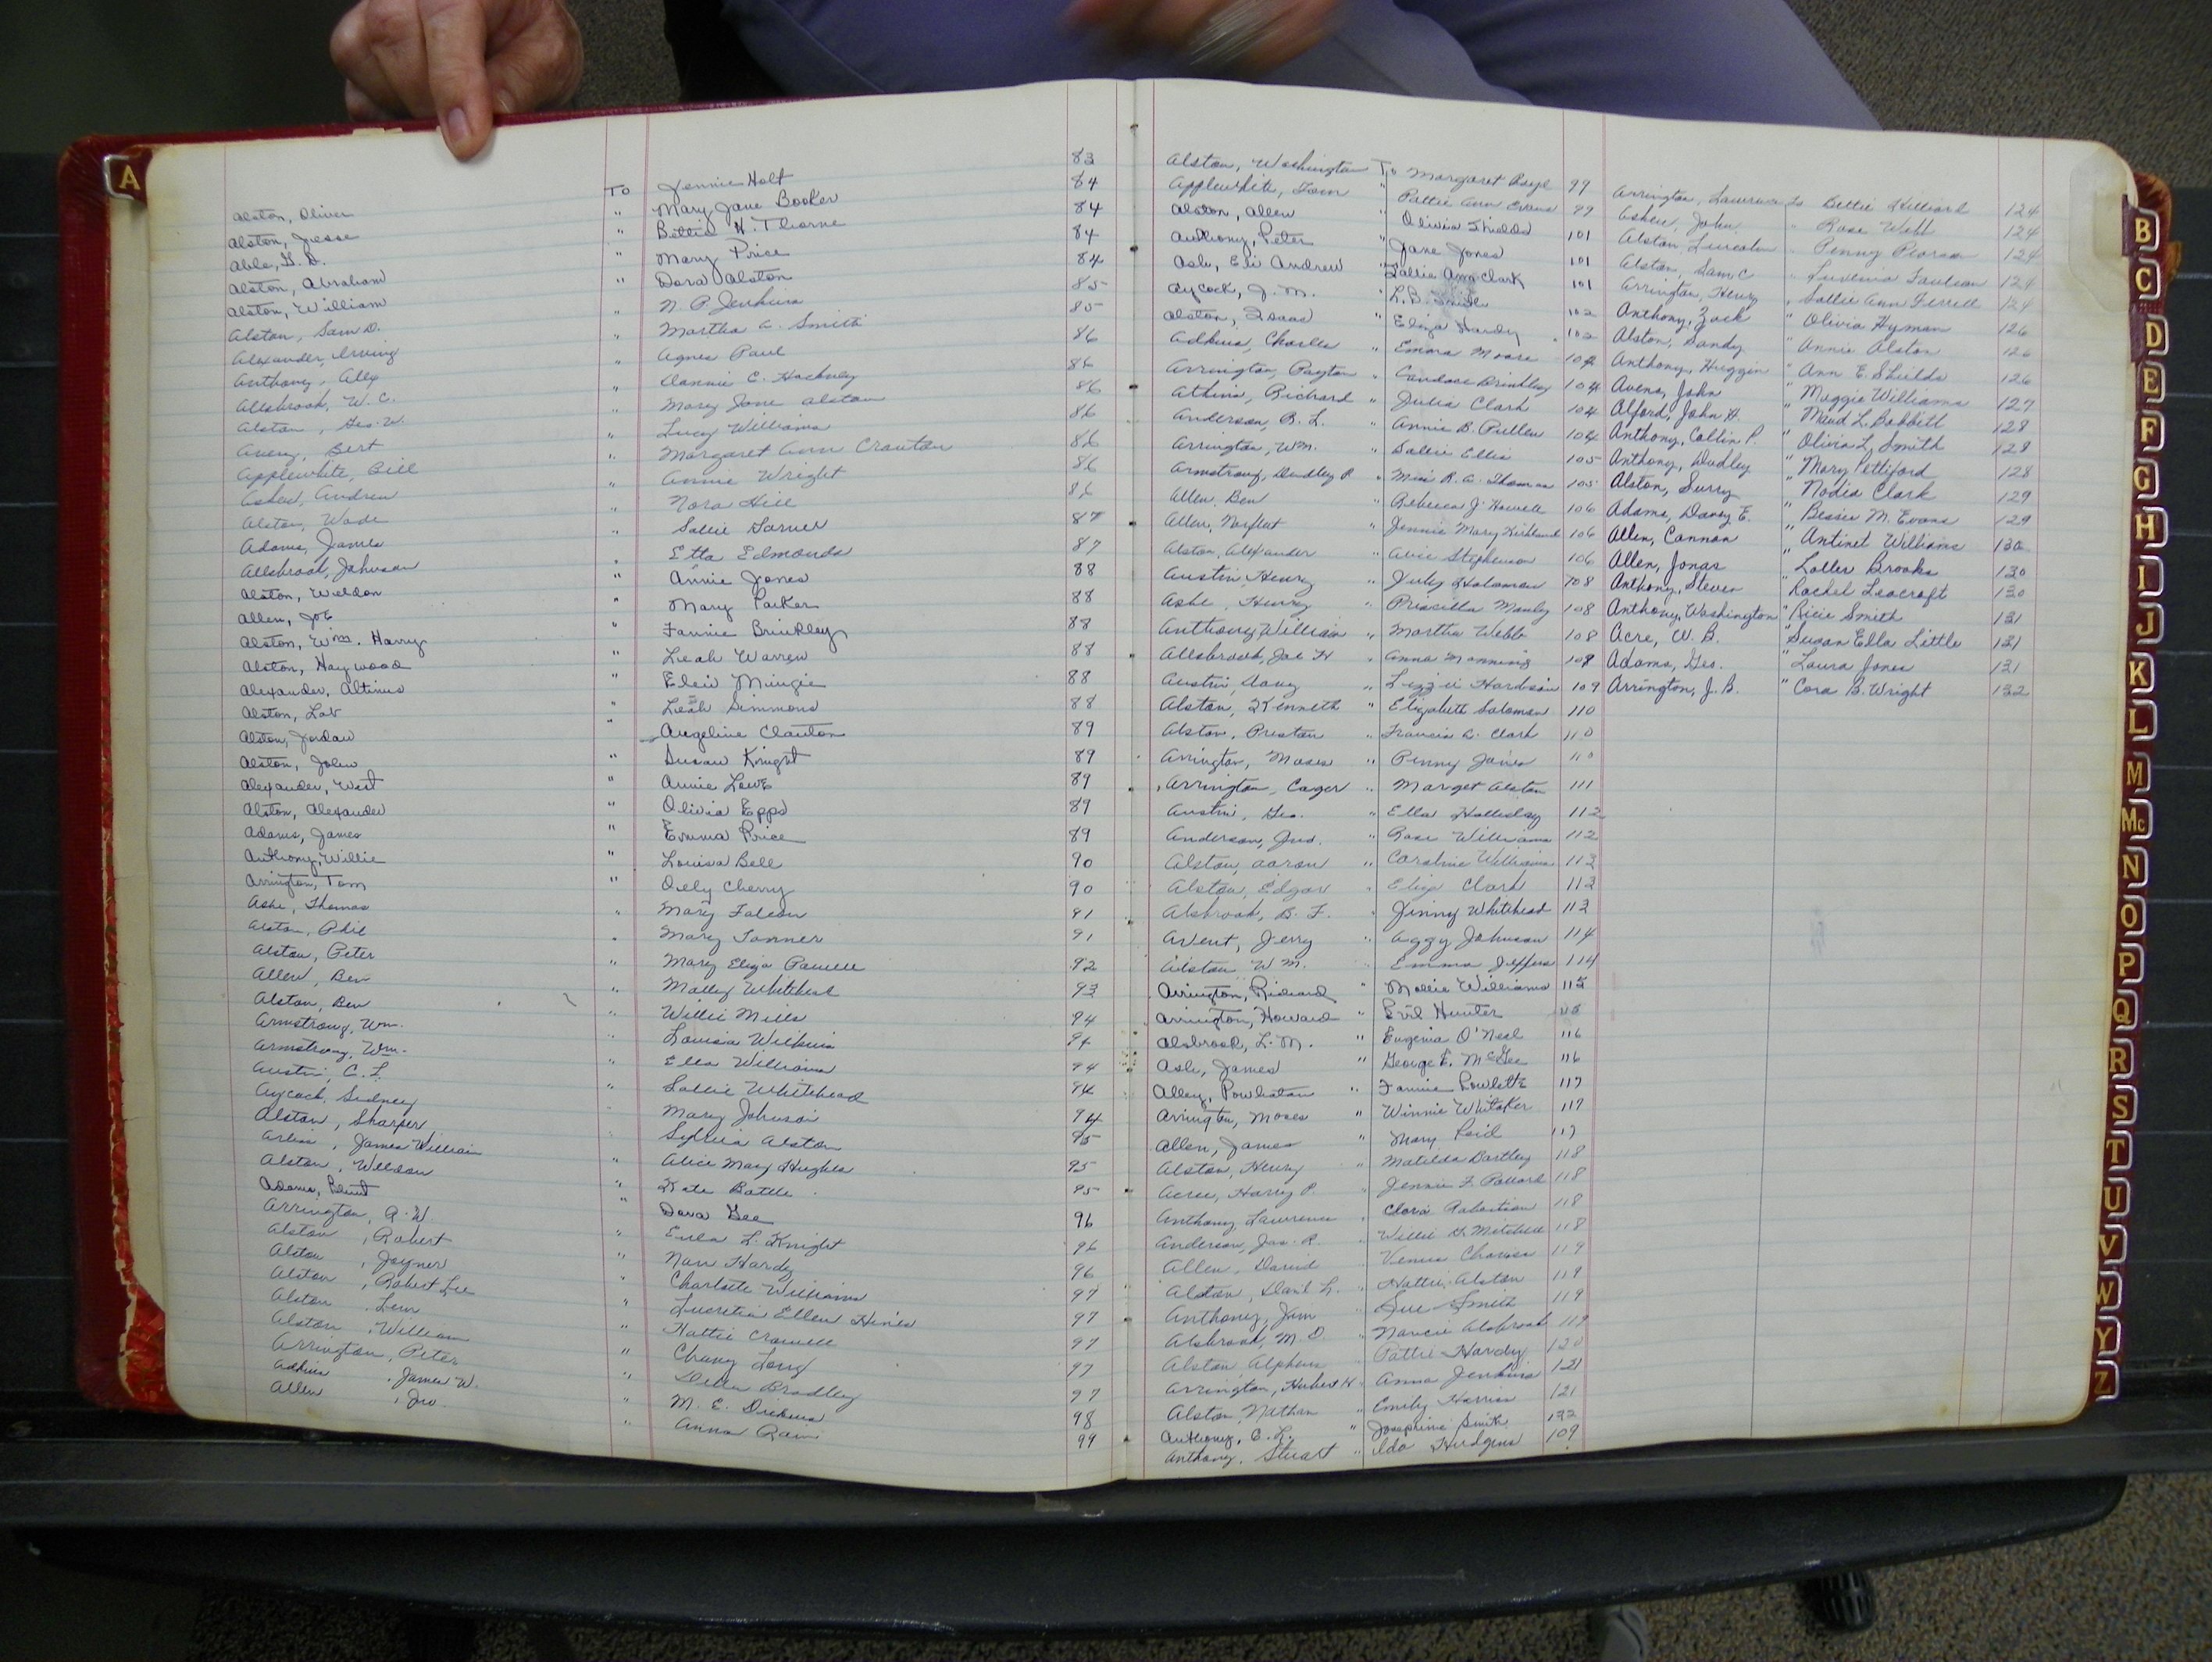 A
Alston, Oliver To Jennie Holt 83
Alston, Jesse " Mary Jane Booker 84
Able, G. D. " Bettie H. Thorne 84
Alston, Abraham " Mary Price 84
Alston, William " Dora Alston 84
Alston, Sam D. N. P. Jenkins 85
Alexander, Irving " Martha A. Smith 85
Anthony, Alex " Agnes Paul 86
Allsbrook, W. C. " Nannie C. Hackney 86
Alston, Geo. W. " Mary Jane Alston 86
Avery, Bert " Lucy Williams 86
Applewhite, Bill " Margaret Ann Crowton 86
Ashew, Andrew " Annie Wright 86
Alston, Wade " Nora Hill 86
Adams, James " Sallie Garner 87
Allsbrook, Johnson " Etta Edmonds 87
Alston, Weldon " Annie Jones 88
Allen, Joe " Mary Parker 88
Alston, Wm. Harry " Fannie Brinkley 88
Alston, Haywood " Leah Warren 88
Alexander, Altimus " Elsie Mingie 88
Alston, Lat " Leah Simmons 88
Alston, Jordan " Angeline Clanton 89
Alston, John " Susan Knight 89
Alexander, West " Annie Lowe 89
Alston, Alexander " Olivia Epps 89
Adams, James " Emma Price 89
Anthony, Willie " Louisa Bell 90
Arrington, Tom " Dely Cherry 90
Ashe, Thomas " Mary Falcon 91
Alston, Phil " Mary Tanner 91
Alston, Peter " Mary Eliza Powell 92
Allen, Ben " Molly Whitehead 93
Alston, Ben " Willie Mills 94
Armstrong, Wm. " Louisa Wilkins 94
Armstrong, Wm. " Ella Williams 94
Austin, C. L. " Sallie Whitehead 94
Aycock, Sidney " Mary Johnson 94
Alston, Sharper " Sylvia Alston 95
Artis, James William " Alice Mary Hughes 95
Alston, Weldon " Kate Battle 95
Adams, Blunt " Dora Gee 96
Arrington, A. W. " Eula L. Knight 96
Alston, Robert " Nan Hardy 96
Alston, Joyner " Charlotte Williams 97
Alston, Robert Lee " Lucretia Ellen Hines 97
Alston, Lem " Hattie Crowell 97
Alston, William " Chany Long 97
Arrington, Peter " Della Bradley 97
Adkins, James W. " M. E. Dickens 98
Allen, Jno. " Anna Rain 99
Alston, Washington To Margaret Boyd 99
Applewhite, Tom " Pattie Ann Evans 99
Alston, Allen " Olivia Shields 101
Anthony, Peter " Jane Jones 101
Ash, Eli Andrew " Sallie Ann Clark 101
Aycock, J. M. " L. B. Smith 102
Alston, Isaac " Eliza Hardy 102
Adkins, Charles " Emma Moore 104
Arrington, Payton " Candace Brinkley 104
Atkins, Richard " Julia Clark 104
Anderson, B. L. " Annie B. Pullen 104
Arrington, Wm. " Sallie Ellis 105
Armstrong, Dudley P. " Miss R. A. Thomas 105
Allen, Ben " Rebecca J. Howell 106
Allen, Norfleet " Jennie Mary Kirkland 106
Alston, Alexander " Avie Stephenson 106
Austin, Henry " July Solomon 108
Ashe, Henry " Priscilla Manly 108
Anthony, William " Martha Webb 108
Allsbrook, Joe H " Anna Manning 109
Austin, Aany " Lizzie Hardison 109
Alston, Kenneth " Elizabeth Solomon 110
Alston, Preston " Francis A. Clark 110
Arrington, Moses " Penny Jones 110
Arrington, Cager " Marget Alston 111
Austin, Geo. " Ella Holliday 112
Anderson, Jno. " Rose Williams 112
Alston, Aaron " Caroline Williams 113
Alston, Edgar " Eliza Clark 113
Alsbrook, B. F. " Jinny Whitehead 113
Avent, Jerry " Aggy Johnson 114
Alston Wm. " Emma Jeffers 114
Arrington, Richard " Mollie Williams 115
Arrington, Howard " Evil Hunter 115
Alsbrook, L. M. " Eugenia O'Neal 116
Ash, James " George E. McGee 116
Alley, Powhatan " Fannie Rowlette 117
Arrington, Moses " Winnie Whitaker 117
Allen, James " Mary Reid 117
Alston, Henry " Matilda Bartley 118
Acree, Harry P. " Jennie F. Pollard 118
Anthony Lawrence " Clara Robertson 118
Anderson, Jas. R. " Willie G. Mitchell 118
Allen, David " Venus Chaves 119
Alston, Danl L. " Hattie Alston 119
Anthony, Jim " Sue Smith 119
Alsbrook, M. D. " Nancie Alsbrook 119
Alston, Alpheus " Pattie Hardy 120
Arrington, Hubert H. Anna Jenkins 121
Alston, Nathan " Emily Harris 121
Anthony, C. L. " Josephine Smith 122
Anthony, Stuart " Ida Hudgins 109
Arrington, Lawrence To Bettie Hilliard 124
Ashew, John " Rose Webb 124
Alston, Lincoln " Penny Pearson 124
Alston, Sam C " Luvenia Faulcon 124
Arrington, Henry " Sallie Ann Ferrell 124
Anthony, Zack " Olivia Hyman 126
Alston, Sandy " Annie Alston 126
Anthony, Huggin " Ann E. Shields 126
Avens, John " Maggie Williams 127
Alford, John H. " Maud L. Babbitt 128
Anthony, Collin P. " Olivia L. Smith 128
Anthony, Dudley " Mary Pettiford 128
Alston, Surry " Nodia Clark 129
Adams, Davey E. " Bessie M. Evans 129
Allen, Cannon " Antinet Williams 130
Allen, Jonas " Lotter Brooks 130
Anthony, Steven " Rachel Leacroft 130
Anthony, Washington " Ricie Smith 131
Acre, W. B. " Susan Ella Little 131
Adams, Geo. " Laura Jones 131
Arrington, J. B. " Cora B. Wright 132
B
C
D
E
F
G
H
I
J
K
L
M
Mc
N
O
P
Q
R
S
T
U
V
W
Y
Z